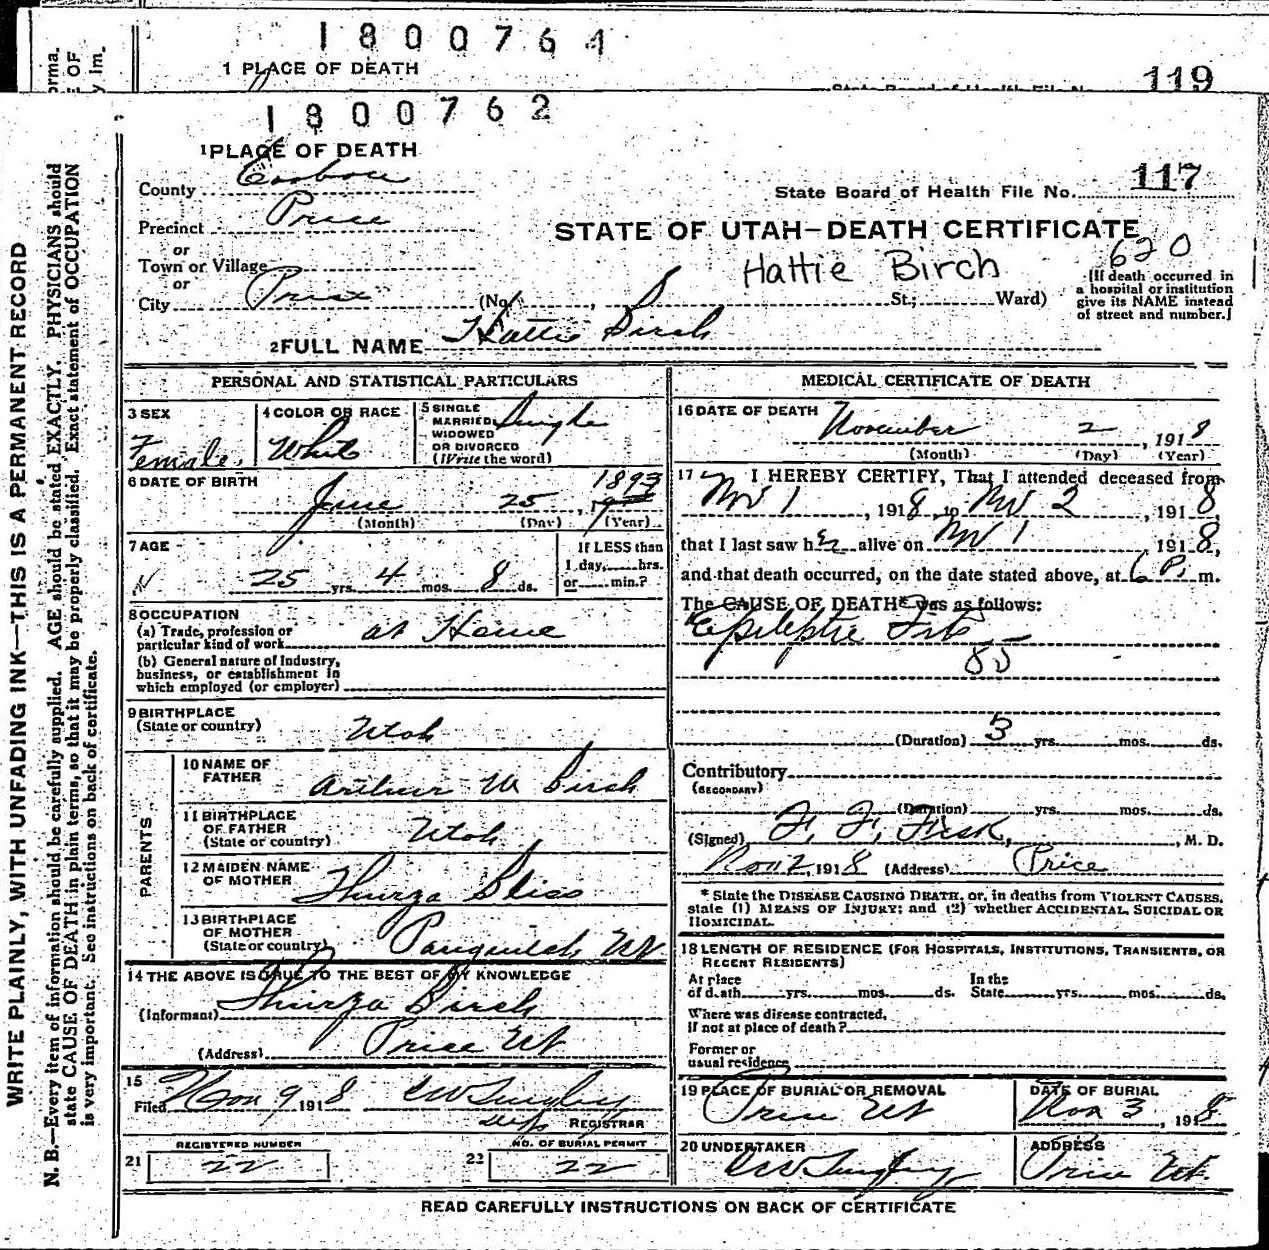 1800761
1 PLACE OF DEATH
119
1800762
1 PLACE OF DEATH
County Carbon
State Board of Health File No. 117
Precinct Price
STATE OF UTAH—DEATH CERTIFICATE
or
Town or Village
Hattie Birch
620
or
City Price (No. , St.; Ward)
[If death occurred in
a hospital or institution
give its NAME instead
of street and number.]
2 FULL NAME Hattie Birch
PERSONAL AND STATISTICAL PARTICULARS
3 SEX
Female
4 COLOR OR RACE
White
5 SINGLE
MARRIED
WIDOWED
OR DIVORCED
(Write the word)
Single
6 DATE OF BIRTH
June 25, 1893
(Month) (Day) (Year)
7 AGE
25 yrs. 4 mos. 8 ds.
If LESS than
1 day, hrs.
or min.?
8 OCCUPATION
(a) Trade, profession or
particular kind of work at Home
(b) General nature of Industry,
business, or establishment in
which employed (or employer)
9 BIRTHPLACE
(State or country) Utah
PARENTS
10 NAME OF
FATHER Arthur W Birch
11 BIRTHPLACE
OF FATHER
(State or country) Utah
12 MAIDEN NAME
OF MOTHER Thurza Bliss
13 BIRTHPLACE
OF MOTHER
(State or country) Panguitch, Ut
14 THE ABOVE IS TRUE TO THE BEST OF MY KNOWLEDGE
(Informant) Thurza Birch
(Address) Price Ut
15
Filed Nov 9 1918
REGISTRAR
REGISTERED NUMBER
21 22
NO. OF BURIAL PERMIT
22 22
MEDICAL CERTIFICATE OF DEATH
16 DATE OF DEATH
November 2, 1918
(Month) (Day) (Year)
17 I HEREBY CERTIFY, That I attended deceased from
Nov 1, 1918, to Nov 2, 1918,
that I last saw her alive on Nov 1 1918,
and that death occurred, on the date stated above, at 6 P. m.
The CAUSE OF DEATH* was as follows:
Epileptic Fits
85
(Duration) 3 yrs. mos. ds.
Contributory
(SECONDARY)
(Duration) yrs. mos. ds.
(Signed) F. F. Fisk, M. D.
Nov 2, 1918 (Address) Price
* State the DISEASE CAUSING DEATH, or, in deaths from VIOLENT CAUSES,
state (1) MEANS OF INJURY; and (2) whether ACCIDENTAL, SUICIDAL OR
HOMICIDAL.
18 LENGTH OF RESIDENCE (FOR HOSPITALS, INSTITUTIONS, TRANSIENTS, OR
RECENT RESIDENTS)
At place In the
of death yrs. mos. ds. State yrs. mos. ds.
Where was disease contracted,
If not at place of death?
Former or
usual residence
19 PLACE OF BURIAL OR REMOVAL
Price Ut
DATE OF BURIAL
Nov 3, 1918
20 UNDERTAKER
ADDRESS
Price Ut.
READ CAREFULLY INSTRUCTIONS ON BACK OF CERTIFICATE
WRITE PLAINLY, WITH UNFADING INK—THIS IS A PERMANENT RECORD
N. B.—Every item of information should be carefully supplied. AGE should be stated EXACTLY. PHYSICIANS should
state CAUSE OF DEATH in plain terms, so that it may be properly classified. Exact statement of OCCUPATION
is very important. See instructions on back of certificate.